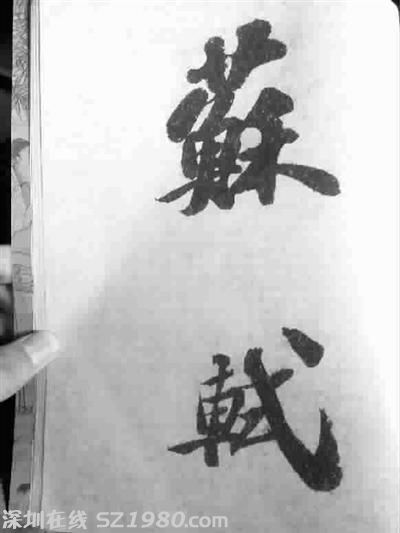 蘇
軾
深圳在线 SZ1980.com